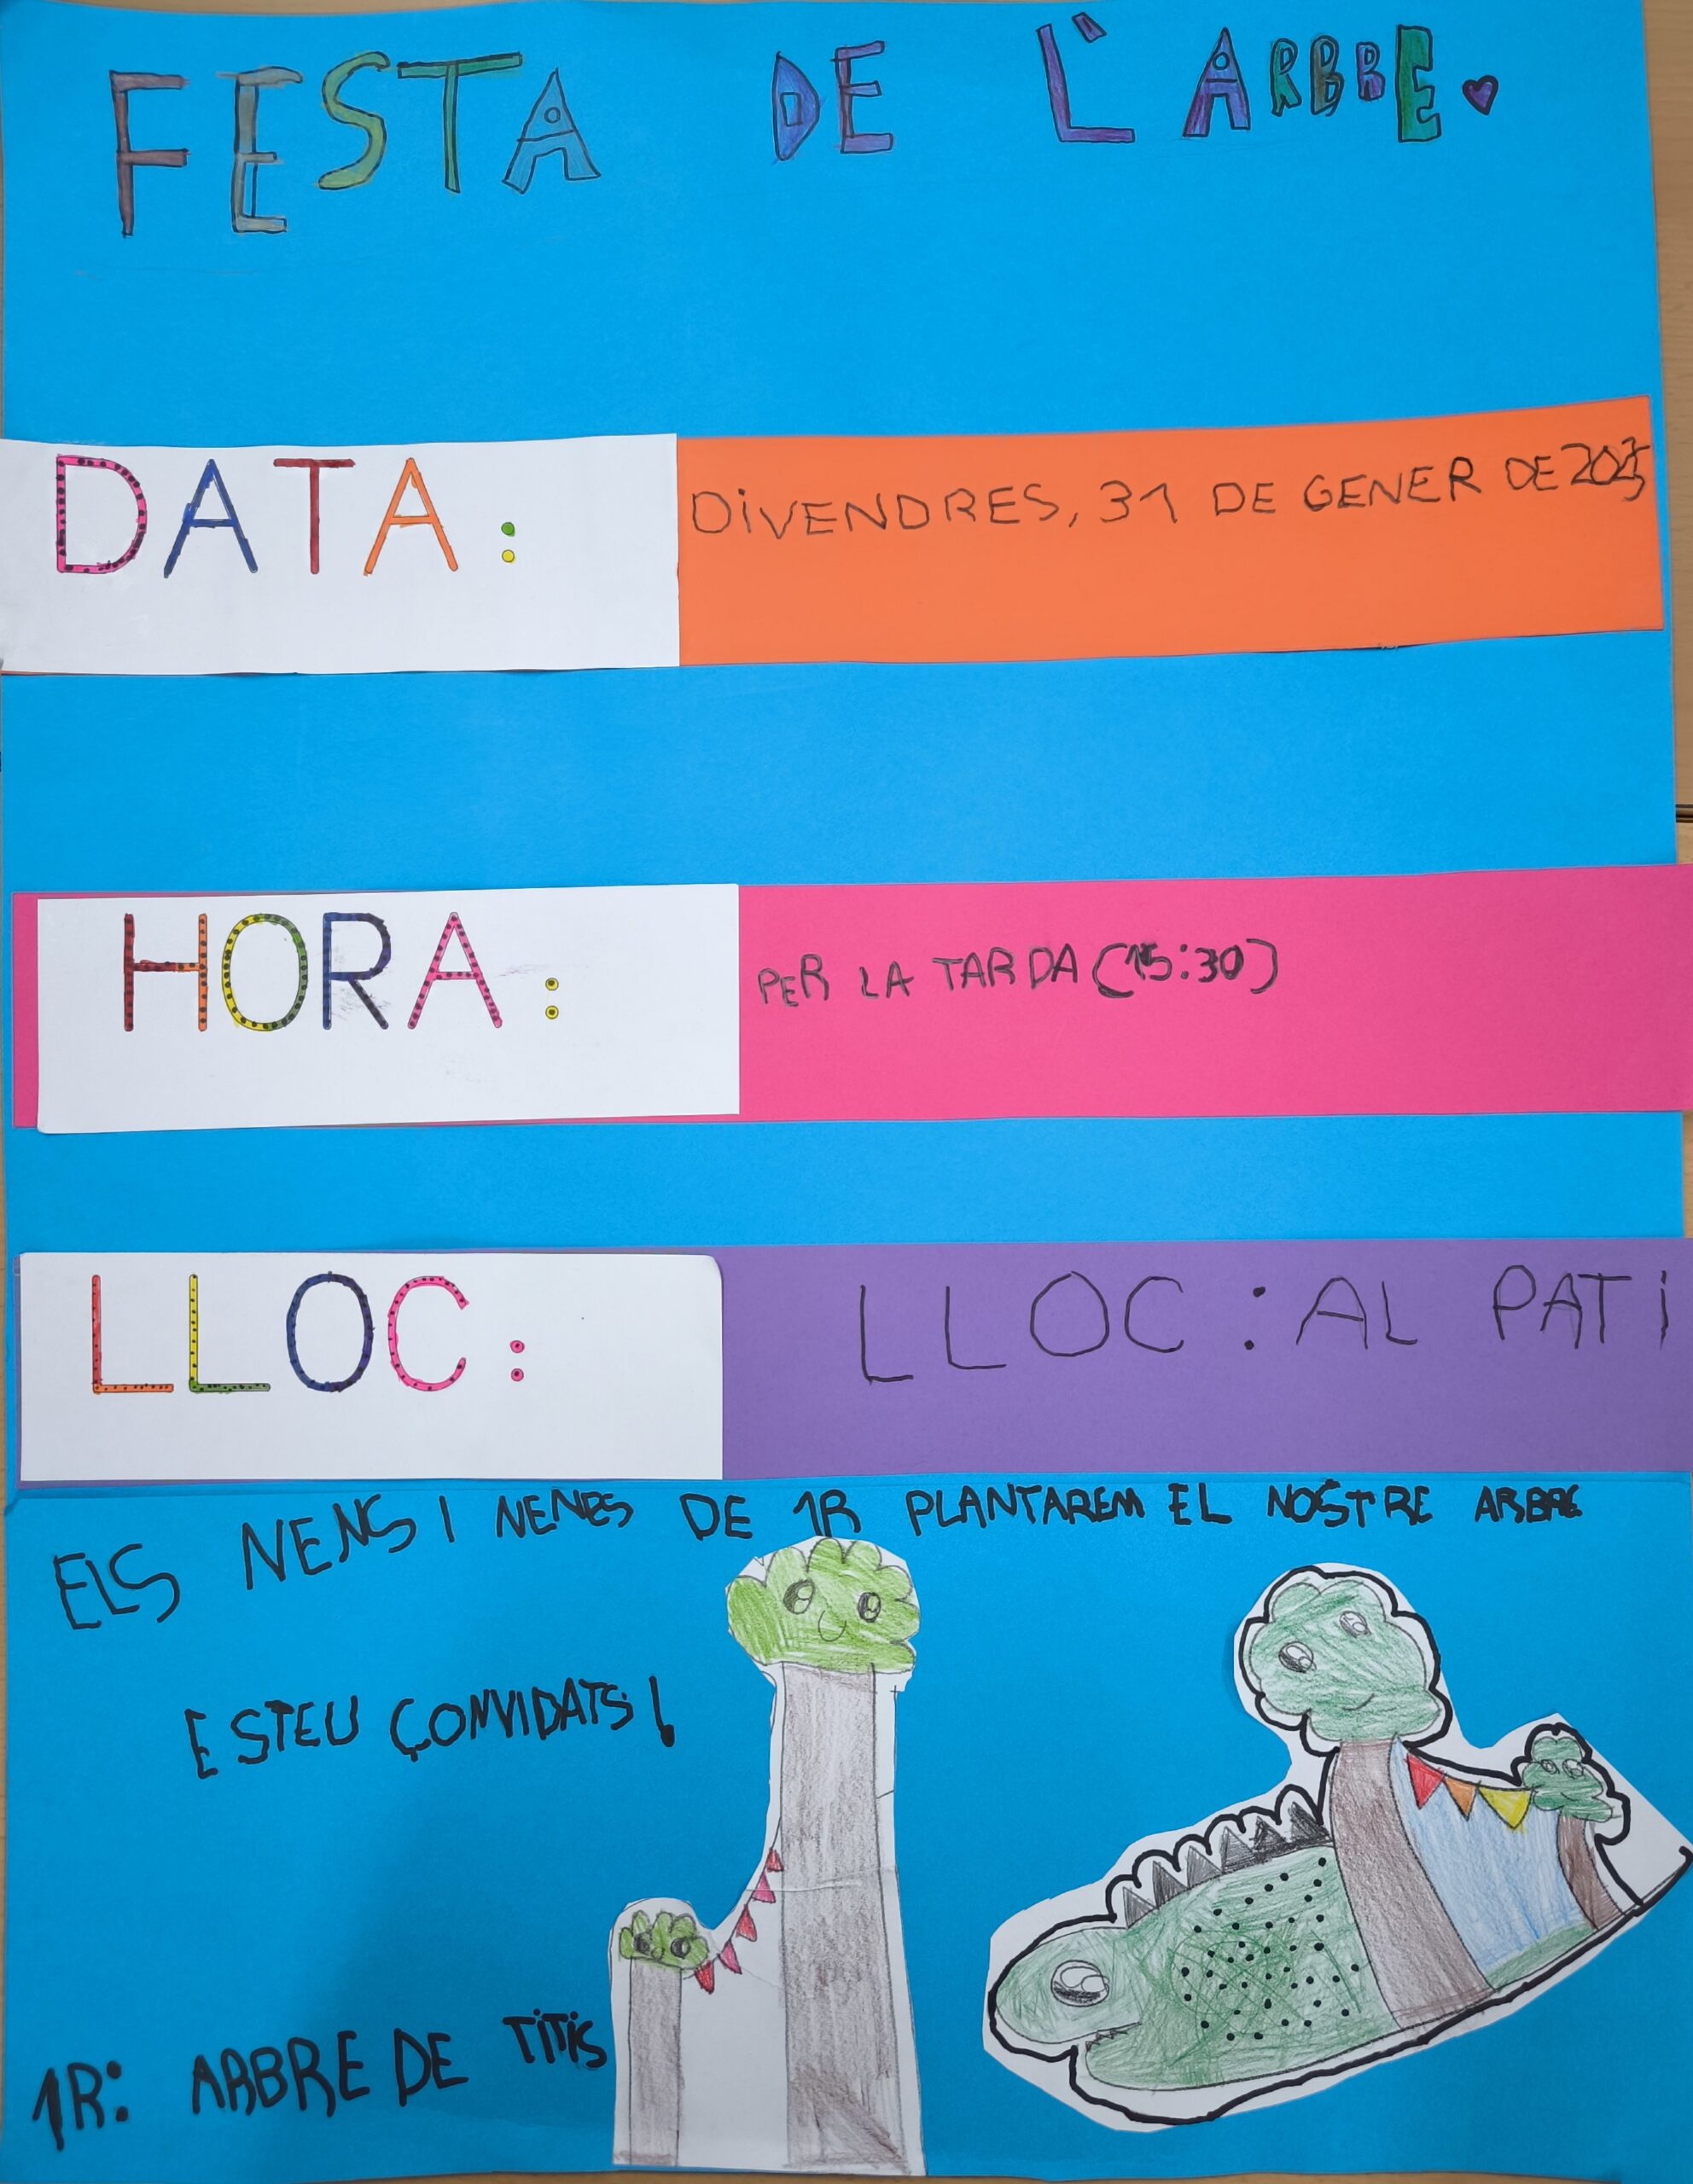 FESTA DE L'ARBRE
DATA: DIVENDRES, 31 DE GENER DE 2025
HORA: PER LA TARDA (15:30)
LLOC: LLOC: AL PATI
ELS NENS I NENES DE 1R PLANTAREM EL NOSTRE ARBRE
ESTEU CONVIDATS!
1R: ARBRE DE TITIS